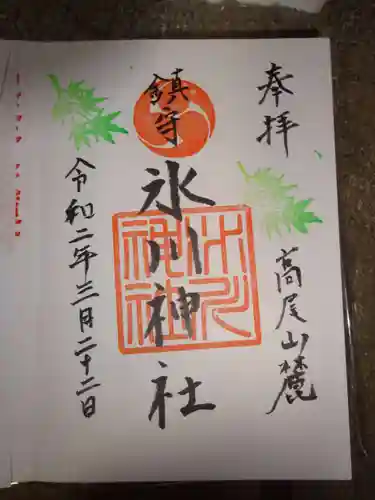 奉拝
高尾山麓
鎮守
氷川神社
氷川神社
令和二年三月二十二日